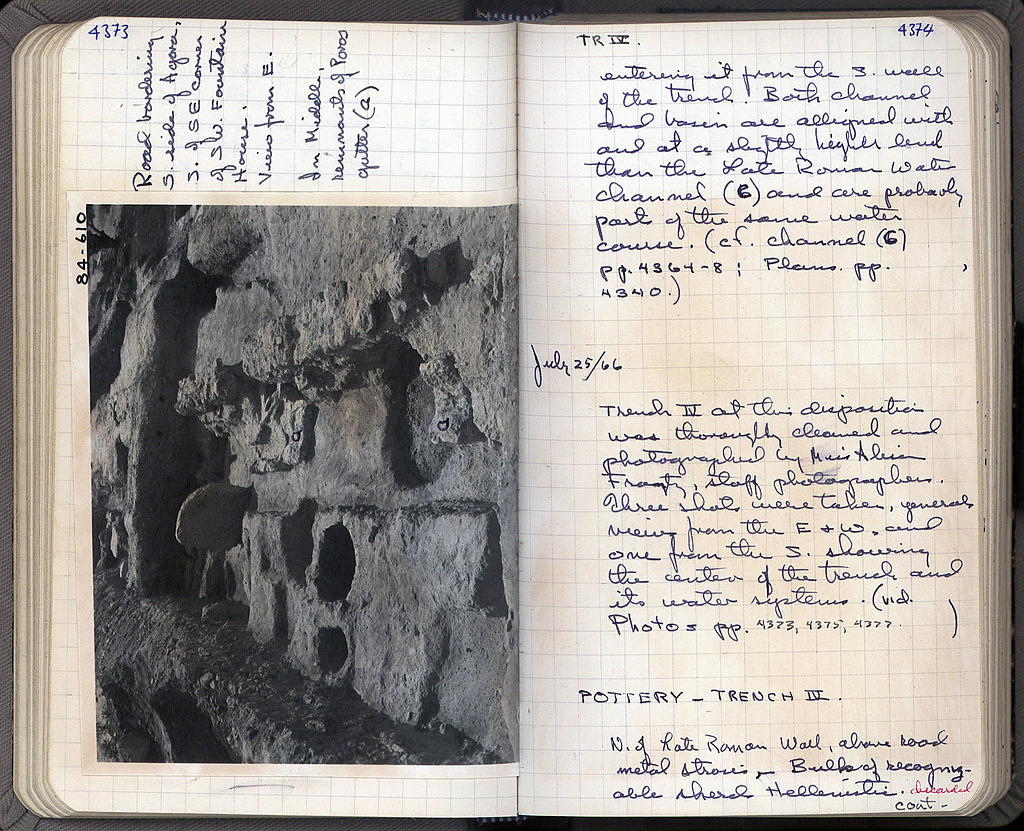 4373
Road bordering
S. side of Agora,
S. of SE corner
of S.W. Fountain
House.
View from E.
In Middle,
remnants of Poros
gutter (a)
84-610
a
a
4374
TR IV.
entering it from the S. wall
of the trench. Both channel
and basin are alligned with
and at a slightly higher level
than the Late Roman Water
channel (6) and are probably
part of the same water
course. (cf. channel (6)
pp. 4364-8; Plans. pp. ,
4340.)
July 25/66
Trench IV at this disposition
was thoroughly cleaned and
photographed by Miss Alison
Frantz, staff photographer.
Three shots were taken, general
views from the E + W. and
one from the S. showing
the center of the trench and
its water systems. (vid.
Photos pp. 4373, 4375, 4377. )
POTTERY - TRENCH IV.
N. of Late Roman Wall, above road
metal strosis - Bulk of recogniz-
able sherds Hellenistic. discarded
cont-